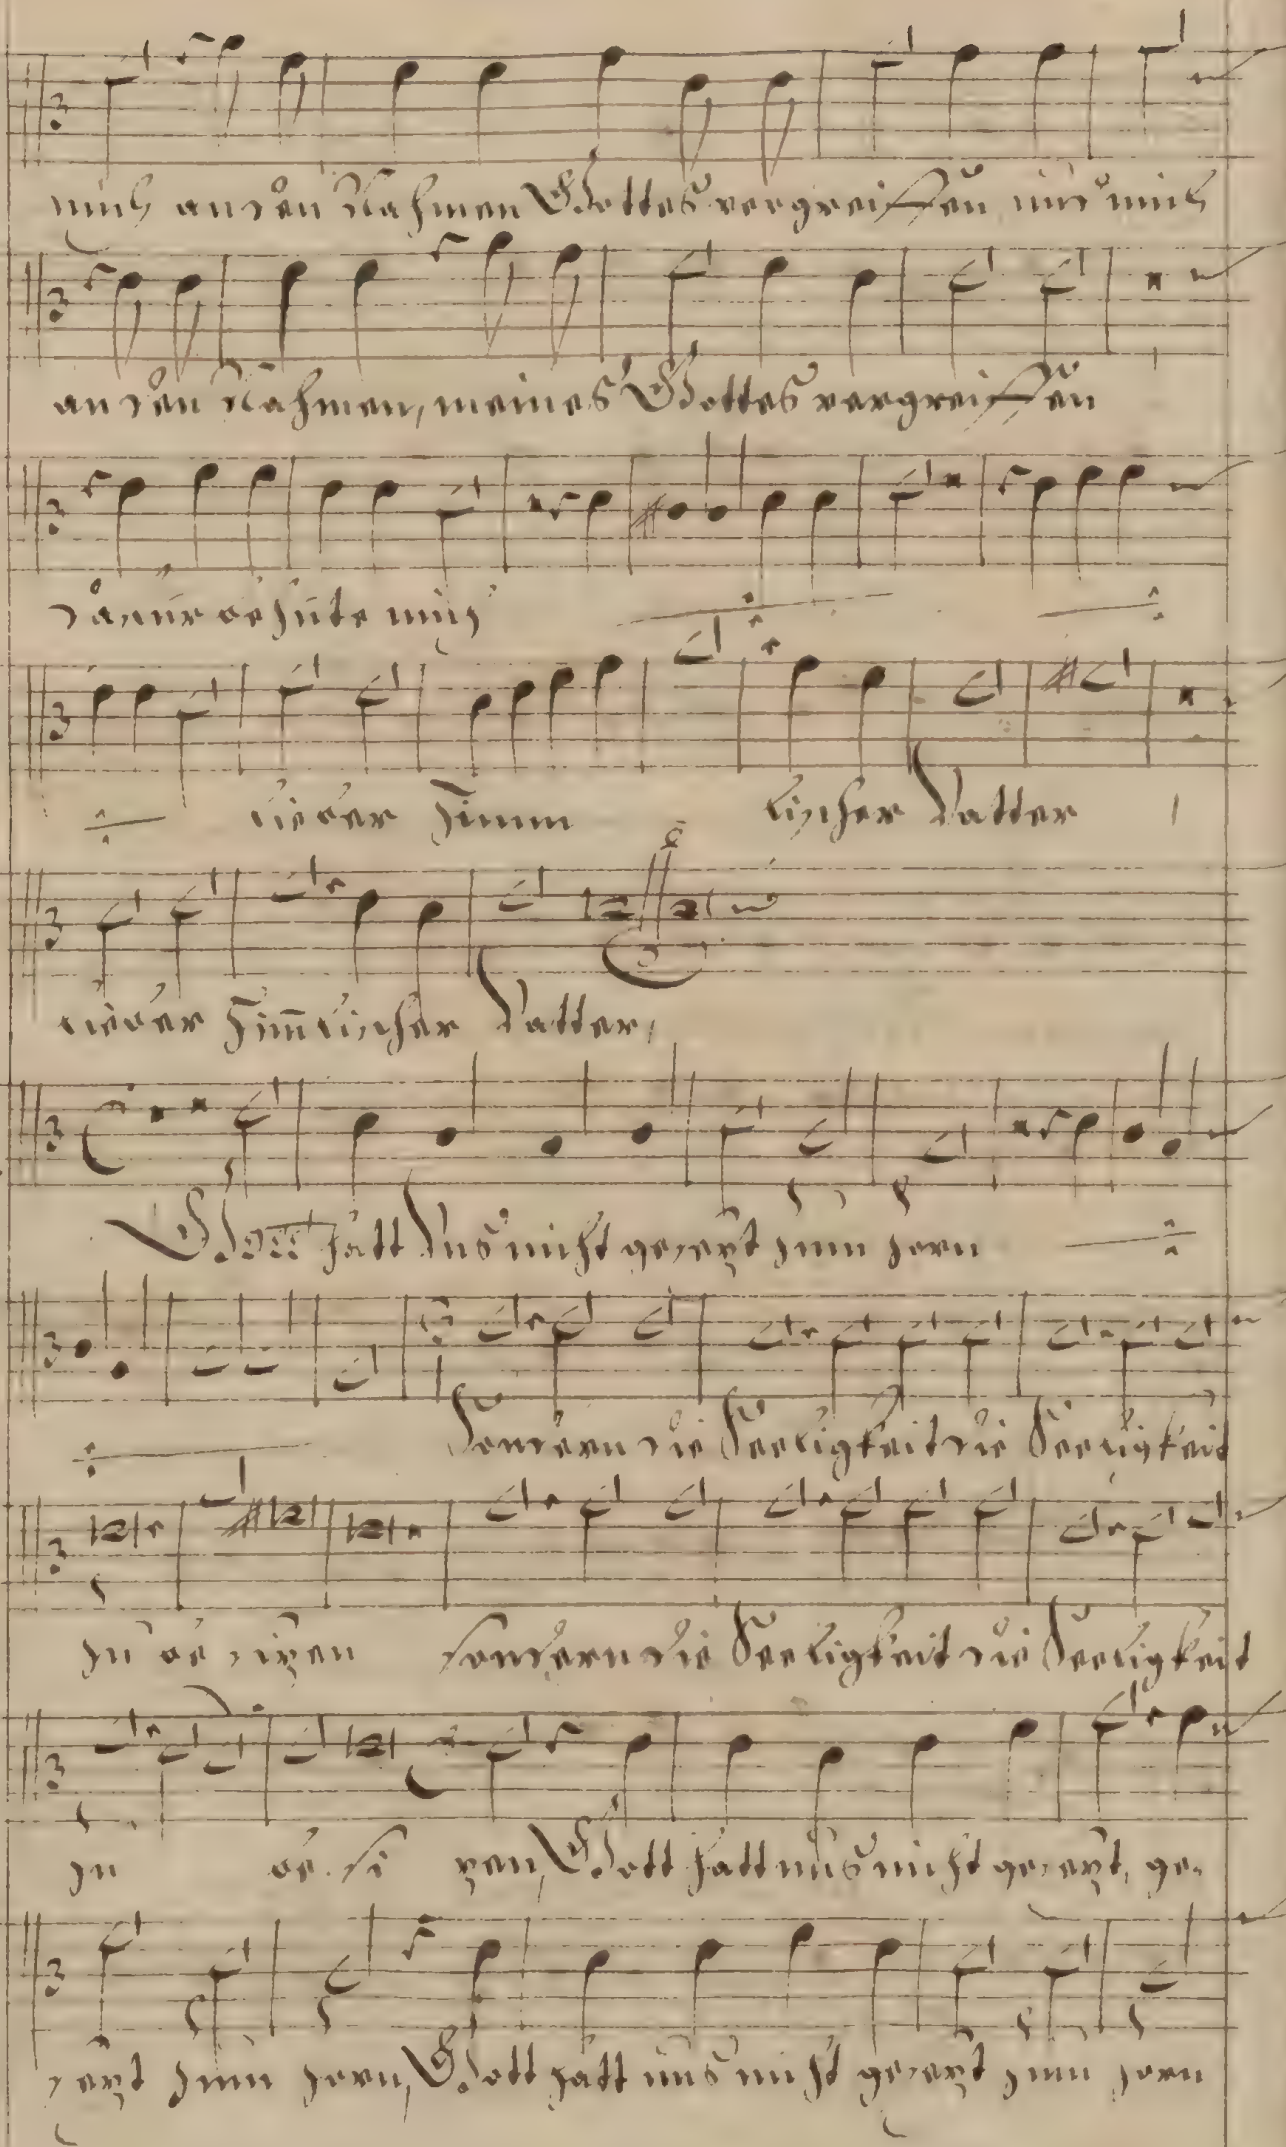 mich an den Nahmen Gottes vergreiffen und mich
an den Nahmen, meines Gottes vergreiffen
dafür behüte mich
lieber Himm lischer Vatter
lieber Him̄lischer Vatter,
Gott hatt Uns nicht gesezt zum zorn
Sondern die Seeligkeit die Seeligkeit
zu besizen sondern die Seeligkeit die Seeligkeit
zu be si zen, Gott hatt uns nicht gesezt, ge-
sezt zum zorn, Gott hatt uns nicht gesezt zum zorn